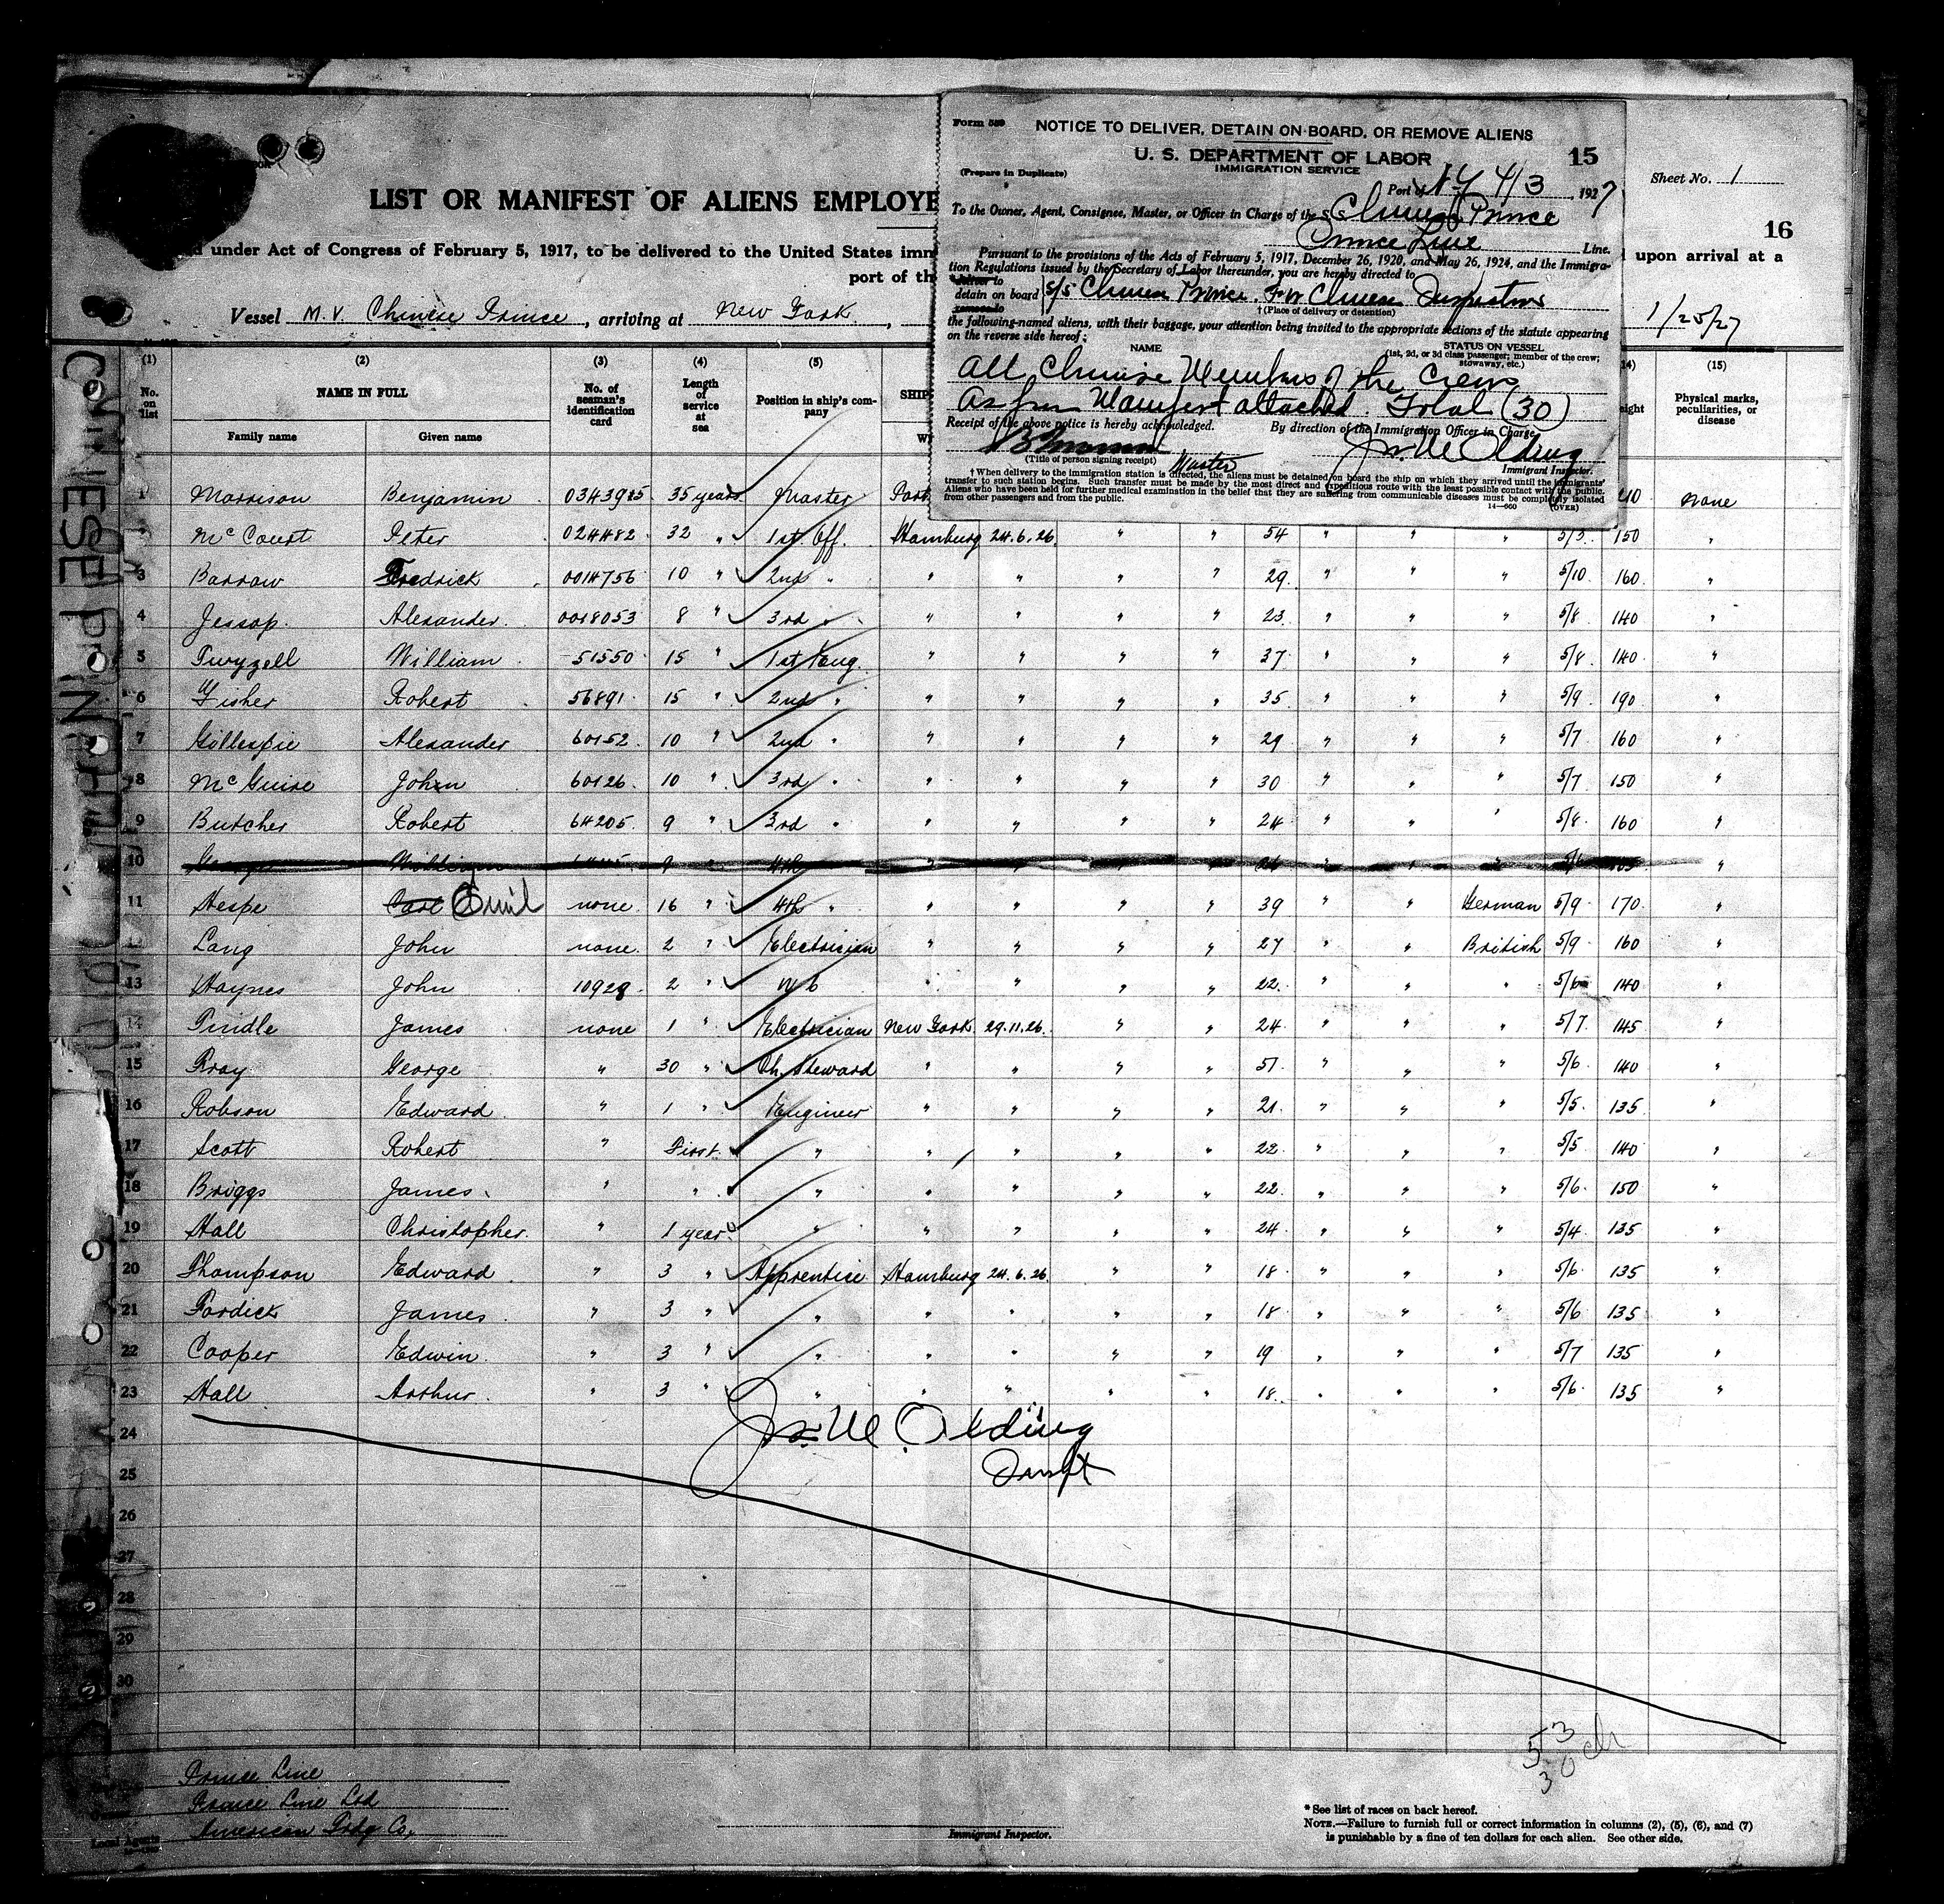 Form 559 NOTICE TO DELIVER, DETAIN ON BOARD, OR REMOVE ALIENS
U. S. DEPARTMENT OF LABOR 15
IMMIGRATION SERVICE
(Prepare in Duplicate)
Port of N Y 4/3, 1927
To the Owner, Agent, Consignee, Master, or Officer in Charge of the SS Chinese Prince
Prince Line Line.
Pursuant to the provisions of the Acts of February 5, 1917, December 26, 1920, and May 26, 1924, and the Immigra-
tion Regulations issued by the Secretary of Labor thereunder, you are hereby directed to
detain on board S/S Chinese Prince. For Chinese Inspectors
† (Place of delivery or detention)
the following-named aliens, with their baggage, your attention being invited to the appropriate sections of the statute appearing
on the reverse side hereof:
NAME STATUS ON VESSEL
(1st, 2d, or 3d class passenger; member of the crew;
stowaway, etc.)
All Chinese Members of the Crew
As per Manifest attached. Total (30)
Receipt of the above notice is hereby acknowledged. By direction of the Immigration Officer in Charge
Jas. M Olding
(Title of person signing receipt) Master Immigrant Inspector.
† When delivery to the immigration station is directed, the aliens must be detained on board the ship on which they arrived until the immigrants'
transfer to such station begins. Such transfer must be made by the most direct and expeditious route with the least possible contact with the public.
Aliens who have been held for further medical examination in the belief that they are suffering from communicable diseases must be completely isolated
from other passengers and from the public. 14—960 (OVER)
Sheet No. 1
16
LIST OR MANIFEST OF ALIENS EMPLOYE
under Act of Congress of February 5, 1917, to be delivered to the United States imm upon arrival at a
port of th
Vessel M.V. Chinese Prince, arriving at New York, 1/25/27
CHINESE PRIN
(1) (2) (3) (4) (5) 14) (15)
No. on list NAME IN FULL No. of seaman's identification card Length of service at sea Position in ship's company SHIP eight Physical marks, peculiarities, or disease
Family name Given name W
1 Morrison Benjamin 0343915 35 years Master Port none
2 McCourt Peter 024482 32 " 1st Off. Hamburg 24.6.26 " " 54 " " " 5/5 150 "
3 Barraw Fredrick 0014756 10 " 2nd " " " " " 29 " " " 5/10 160 "
4 Jessop Alexander 0018053 8 " 3rd " " " " " 23 " " " 5/8 140 "
5 Twyzell William 51550 15 " 1st Eng. " " " " 37 " " " 5/8 140 "
6 Fisher Robert 56891 15 " 2nd " " " " " 35 " " " 5/9 190 "
7 Gillespie Alexander 60152 10 " 2nd " " " " " 29 " " " 5/7 160 "
8 McGuire John 60126 10 " 3rd " " " " " 30 " " " 5/7 150 "
9 Butcher Robert 64205 9 " 3rd " " " " " 24 " " " 5/8 160 "
10 William 9 " 4th " " " " " " " "
11 Hespe Carl Emil none 16 " 4th " " " " " 39 " " German 5/9 170 "
12 Lang John none 2 " Electrician " " " " 27 " " British 5/9 160 "
13 Haynes John 10929 2 " W/O " " " " 22 " " " 5/6 140 "
14 Pindle James none 1 " Electrician New York 29.11.26 " " 24 " " " 5/7 145 "
15 Pray George " 30 " Ch. Steward " " " " 51 " " " 5/6 140 "
16 Robson Edward " 1 " Engineer " " " " 21 " " " 5/5 135 "
17 Scott Robert " First " " " " " 22 " " " 5/5 140 "
18 Briggs James " " " " " " " 22 " " " 5/6 150 "
19 Hall Christopher " 1 year " " " " " 24 " " " 5/4 135 "
20 Thompson Edward " 3 " Apprentice Hamburg 24.6.26 " " 18 " " " 5/6 135 "
21 Fordick James " 3 " " " " " " 18 " " " 5/6 135 "
22 Cooper Edwin " 3 " " " " " " 19 " " " 5/7 135 "
23 Hall Arthur " 3 " " " " " " 18 " " " 5/6 135 "
24
Jas. M Olding
25
Inspt
26
27
28
29
30
53
30 ch
Prince Line
Prince Line Ltd
Local Agents American Trdg Co.
Immigrant Inspector.
* See list of races on back hereof.
NOTE.—Failure to furnish full or correct information in columns (2), (5), (6), and (7)
is punishable by a fine of ten dollars for each alien. See other side.